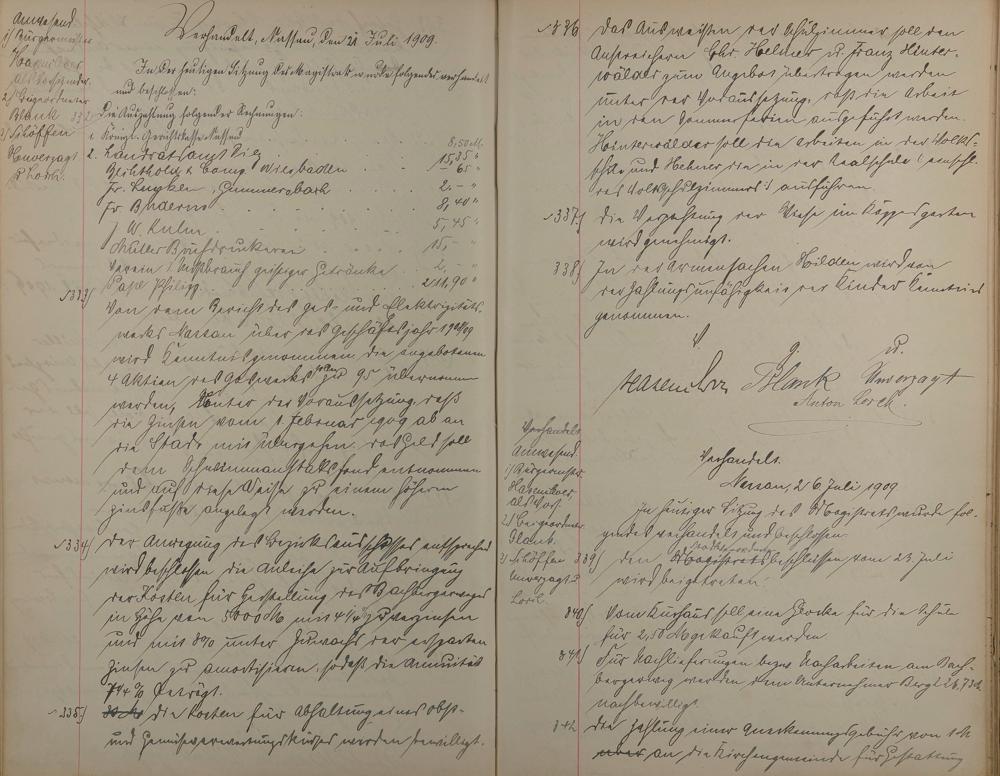 Anwesend
1) Bürgermeister
Hasenclever
als Vorsitzender.
2) Beigeordneter
Blank
3) Schöffen
Unverzagt
u. Lorch.
Verhandelt, Nassau, den 21 Juli 1909.
In der heutigen Sitzung des Magistrats wurde folgendes verhandelt
und beschlossen:
332 Die Auszahlung folgender Rechnungen:
1. Königl. Gerichtskasse Nassau 8,50 M.
2. Landratsamt Diez 15,35 "
Berthold & Comp. Wiesbaden 65 "
Fr. Luyken, Gummersbach 2,- "
Fr. Buderus 8,40 "
J. W. Kuhn 5,45 "
Müller Buchdruckerei 15,- "
Verein g. Mißbrauch geistiger Getränke 2,- "
Pape Philipp 211,90 "
333) Von dem Bericht des Gas- und Elektrizitäts-
werks Nassau über das Geschäftsjahr 1908/09
wird Kenntnis genommen, die angebotenen
4 Aktien des Gaswerks sollen zu 95 übernommen
werden, unter der Voraussetzung, daß
die Zinsen vom 1. Februar 1909 ab an
die Stadt mit übergehen. Das Geld soll
dem entnommen
und auf diese Weise zu einem höheren
Zinsfuße angelegt werden.
334) Der Anregung des Bezirksausschusses entsprechend
wird beschlossen die Anleihe zur Aufbringung
der Kosten für Herstellung des Bachbergerweges
in Höhe von 5000 M mit 4 % zu verzinsen
und mit % unter Zuwachs der ersparten
Zinsen zu amortisieren, sodaß die Annuität
% beträgt.
335) Die Kosten für Abhaltung eines Obst-
und Gemüseverwertungskurses werden bewilligt.
336 Das Ausweißen der Schulzimmer soll den
Anstreichern Chr. Helmer u. Franz Hinter-
wälder zum Angebot übertragen werden
unter der Voraussetzung, daß die Arbeit
in den Sommerferien ausgeführt werden.
Hinterwälder soll die Arbeiten in der Volks-
schule und Helmer die in der Realschule (einschl.
des Volksschulzimmers) ausführen.
337) Die Verpachtung der Wiese im Koppesgarten
wird genehmigt.
338) In der Armensachen Hilden wird von
der Zahlungsunfähigkeit der Kinder Kenntnis
genommen.
V. g. U.
Hasenclever Blank Unverzagt
Anton Lorch.
Verhandelt
Anwesend
1) Bürgermstr.
Hasenclever
als Vors.
2) Beigeordneter
Blank.
3) Schöffen
Unverzagt u.
Lorch.
Verhandelt.
Nassau, 26 Juli 1909
In heutiger Sitzung des Magistrats wurde fol-
gendes verhandelt und beschlossen.
339) Den Stadtverordneten-
beschlüssen vom 23. Juli
wird beigetreten.
340) Vom Kurhaus soll eine Glocke für die Schule
für 2,50 M gekauft werden.
341) Für Nachlieferungen bezw. Nacharbeiten am Bach-
bergerweg werden dem Unternehmer Bergt 26,73 M
nachbewilligt.
342 Die Zahlung einer Anerkennungsgebühr von 1 M
an die Kirchengemeinde für Gestattung